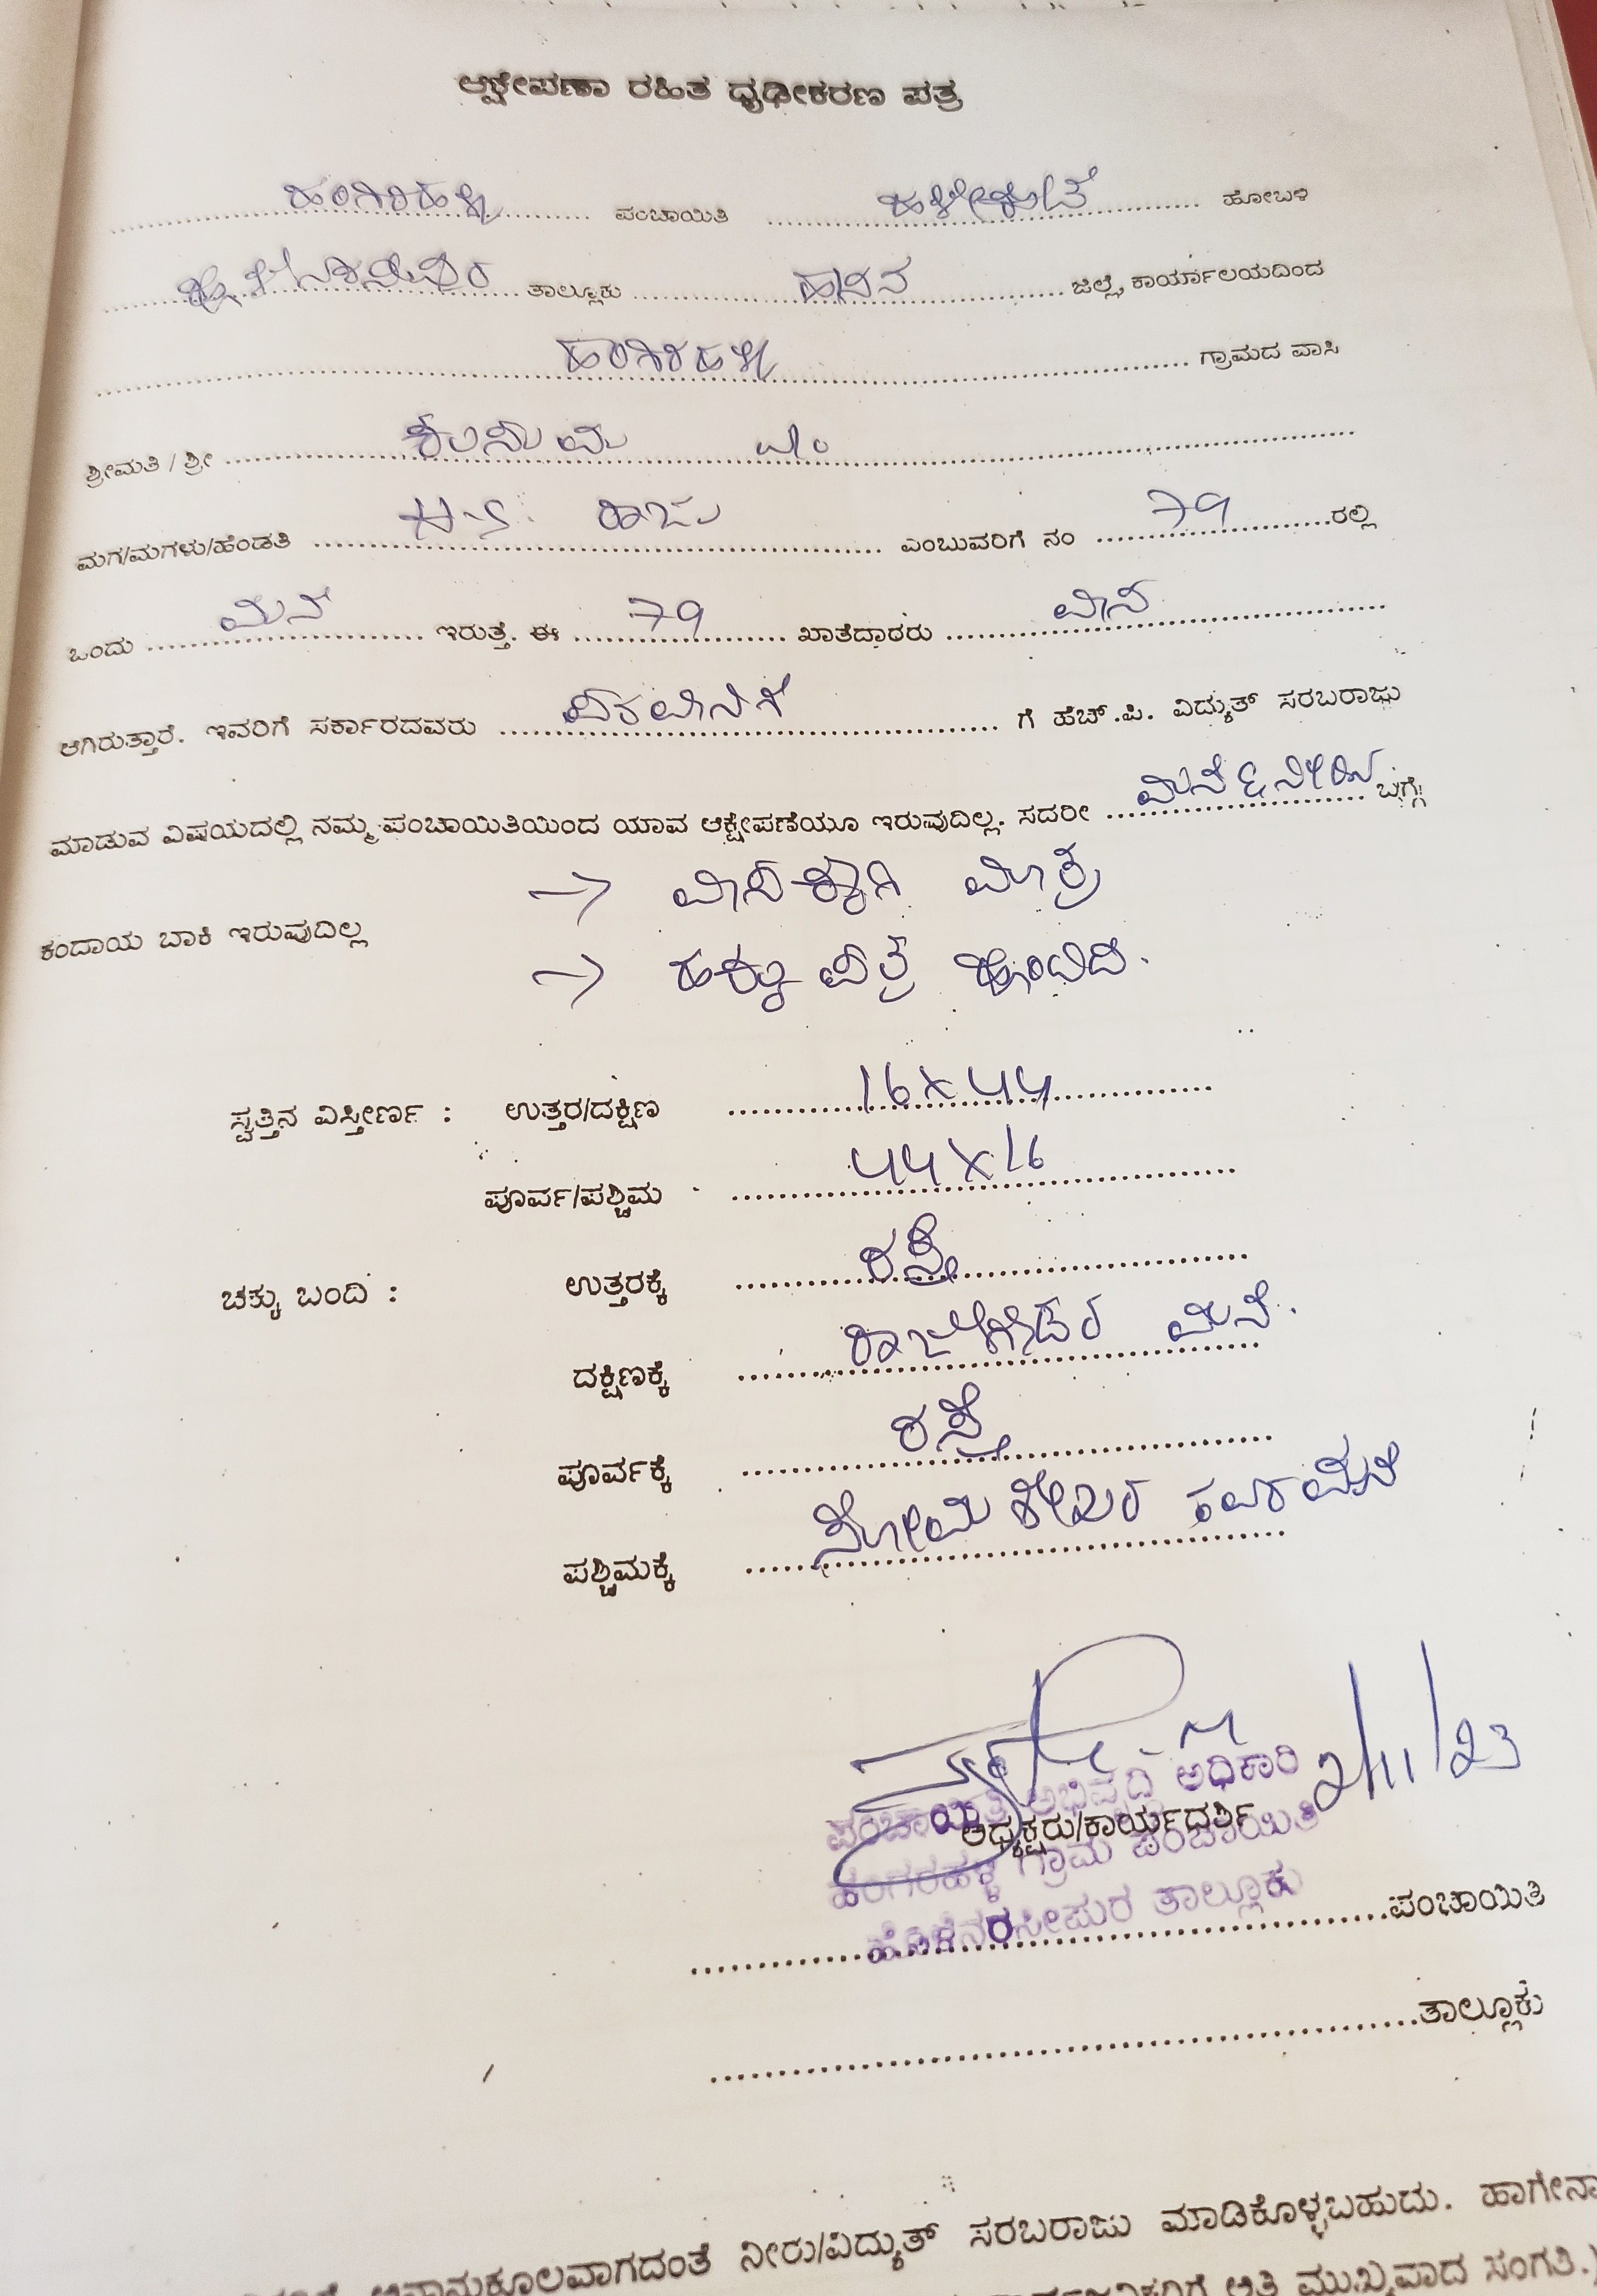 ಆಕ್ಷೇಪಣಾ ರಹಿತ ಧೃಢೀಕರಣ ಪತ್ರ
ಹಂಗರಹಳ್ಳಿ ಪಂಚಾಯಿತಿ ಹಳೇಕೋಟೆ ಹೋಬಳಿ
ಹೊಳೆನರಸೀಪುರ ತಾಲ್ಲೂಕು ಹಾಸನ ಜಿಲ್ಲೆ, ಕಾರ್ಯಾಲಯದಿಂದ
ಹಂಗರಹಳ್ಳಿ ಗ್ರಾಮದ ವಾಸಿ
ಶ್ರೀಮತಿ / ಶ್ರೀ
ಮಗ/ಮಗಳು/ಹೆಂಡತಿ ರಾಜು ಎಂಬುವರಿಗೆ ನಂ 79 ರಲ್ಲಿ
ಒಂದು ಮನೆ ಇರುತ್ತೆ. ಈ 79 ಖಾತೆದಾರರು ವಾಸ
ಆಗಿರುತ್ತಾರೆ. ಇವರಿಗೆ ಸರ್ಕಾರದವರು ಗೆ ಹೆಚ್.ಪಿ. ವಿದ್ಯುತ್ ಸರಬರಾಜು
ಮಾಡುವ ವಿಷಯದಲ್ಲಿ ನಮ್ಮ ಪಂಚಾಯಿತಿಯಿಂದ ಯಾವ ಆಕ್ಷೇಪಣೆಯೂ ಇರುವುದಿಲ್ಲ. ಸದರೀ ಮನೆ & ನೀರಿನ ಬಗ್ಗೆ
→ ವಾಸಕ್ಕಾಗಿ ಮಾತ್ರ
ಕಂದಾಯ ಬಾಕಿ ಇರುವುದಿಲ್ಲ
→ ಹಕ್ಕು ಪತ್ರ ಹೊಂದಿದೆ.
ಸ್ವತ್ತಿನ ವಿಸ್ತೀರ್ಣ : ಉತ್ತರ/ದಕ್ಷಿಣ 16X44
ಪೂರ್ವ/ಪಶ್ಚಿಮ 44X16
ಚಕ್ಕು ಬಂದಿ : ಉತ್ತರಕ್ಕೆ ರಸ್ತೆ
ದಕ್ಷಿಣಕ್ಕೆ ರಾಜೇಗೌಡರ ಮನೆ.
ಪೂರ್ವಕ್ಕೆ ರಸ್ತೆ
ಪಶ್ಚಿಮಕ್ಕೆ ಸೋಮಶೇಖರ ಮನೆ
2/11/23
ಪಂಚಾಯಿತಿ ಅಭಿವೃದ್ಧಿ ಅಧಿಕಾರಿ
ಅಧ್ಯಕ್ಷರು/ಕಾರ್ಯದರ್ಶಿ
ಹಂಗರಹಳ್ಳಿ ಗ್ರಾಮ ಪಂಚಾಯಿತಿ
ಹೊಳೆನರಸೀಪುರ ತಾಲ್ಲೂಕು
ಪಂಚಾಯಿತಿ
ತಾಲ್ಲೂಕು
ನೀರು/ವಿದ್ಯುತ್ ಸರಬರಾಜು ಮಾಡಿಕೊಳ್ಳಬಹುದು.
ಅತಿ ಮುಖ್ಯವಾದ ಸಂಗತಿ.)